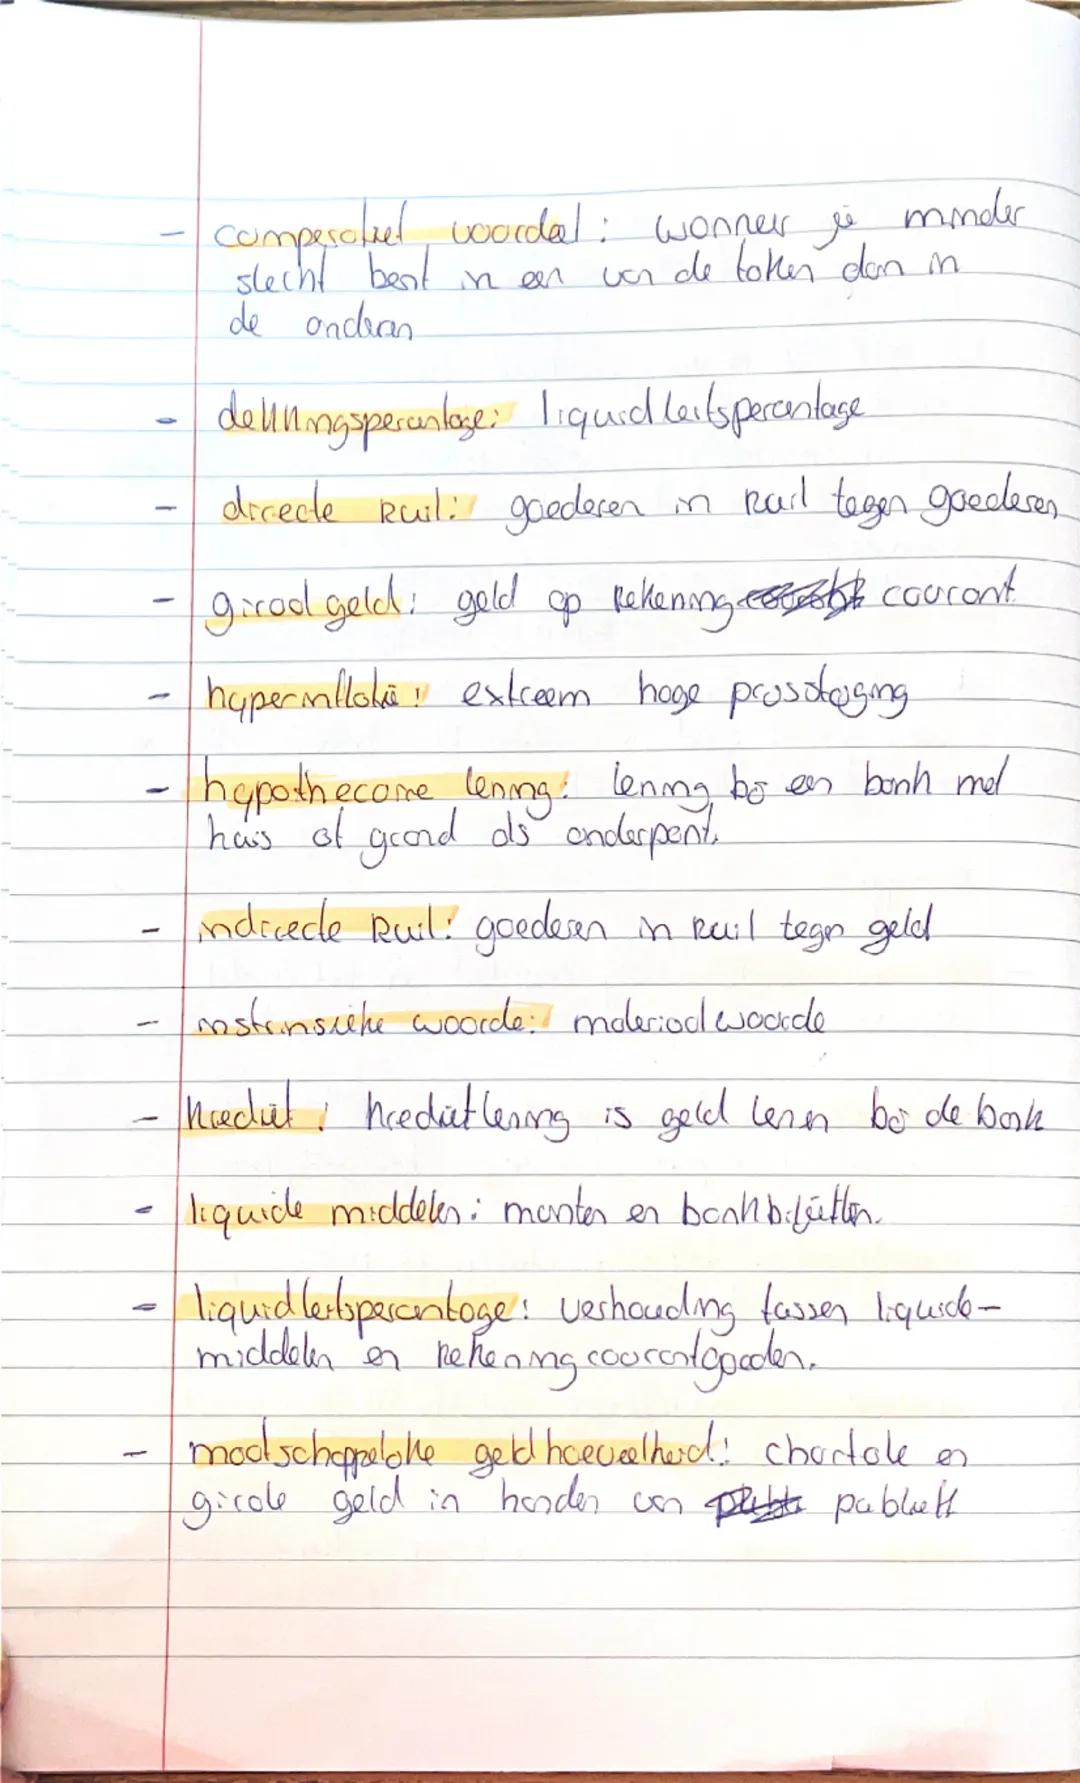 - comperatief voordeel: wanneer je minder
slecht bent in een van de taken dan in
de anderen
- dekkingspercentage: liquiditeitspercentage
- directe ruil: goederen in ruil tegen goederen
- giraal geld: geld op rekening courant
- hyperinflatie: extreem hoge prijsstijging
- hypothecaire lening: lening bij een bank met
huis of grond als onderpant.
- indirecte ruil: goederen in ruil tegen geld
- instrinsieke waarde: materiaal waarde
- krediet: kredietlening is geld lenen bij de bank
- liquide middelen: munten en bankbiljetten.
- liquiditeitspercentage: verhouding tussen liquide-
middelen en rekening courantgoeden.
- maatschappelijke geldhoeveelheid: chartale en
girale geld in handen van publiek